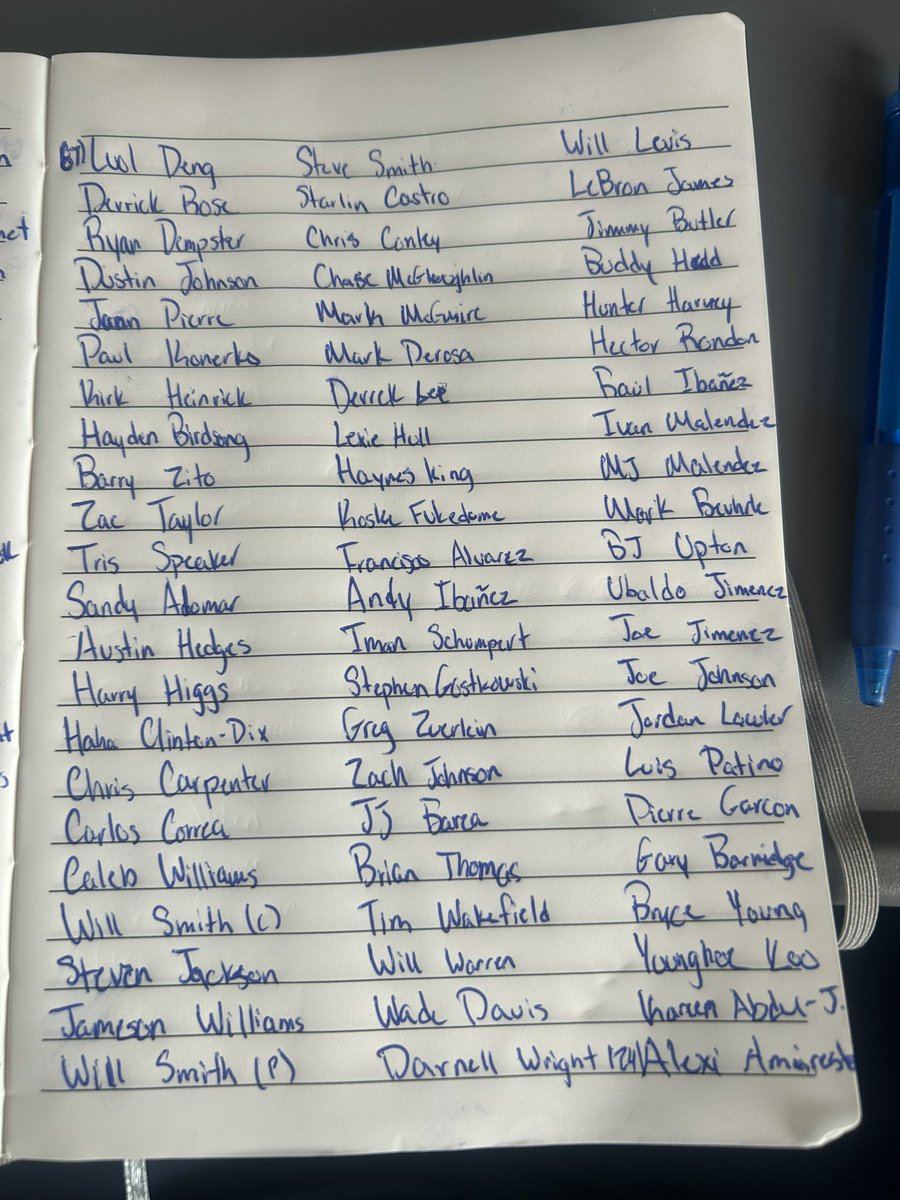 67) Luol Deng Steve Smith Will Levis
Derrick Rose Starlin Castro LeBron James
Ryan Dempster Chris Conley Jimmy Butler
Dustin Johnson Chase McGloughlin Buddy
Juan Pierre Mark McGuire Hunter Harvey
Paul Konerko Mark Derosa Hector Rondon
Kirk Heinrick Derrek Lee Raúl Ibañez
Hayden Birdsong Lexie Hull Ivan Malendez
Barry Zito Haynes King MJ Malendez
Zac Taylor Fukedome Mark
Tris Speaker Francisco Alvarez BJ Upton
Sandy Alomar Andy Ibañez Ubaldo Jimenez
Austin Hedges Iman Schumpert Joe Jimenez
Harry Higgs Stephen Gostkowski Joe Johnson
Haha Clinton-Dix Greg Zuerlein Jordan Lawler
Chris Carpenter Zach Johnson Luis Patino
Carlos Correa JJ Barea Pierre Garcon
Caleb Williams Brian Thomas Gary Barnidge
Will Smith (C) Tim Wakefield Bryce Young
Steven Jackson Will Warren Younghoe Koo
Jameson Williams Wade Davis Kareem Abdul-J.
Will Smith (P) Darnell Wright 124) Alexi